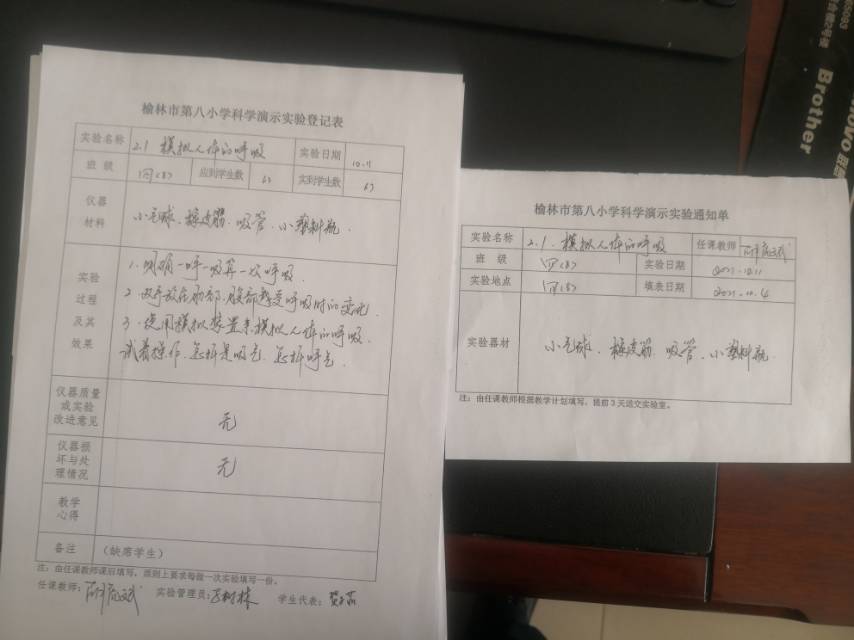 榆林市第八小学科学演示实验登记表
实验名称 2.1 模拟人体的呼吸 实验日期 10.11
班 级 四(8) 应到学生数 63 实到学生数 63
仪器材料 小气球、橡皮筋、吸管、小塑料瓶.
实验过程及其效果
1. 明确一呼一吸算一次呼吸.
2. 双手放在胸部、腹部感受呼吸时的变化.
3. 使用模拟装置来模拟人体的呼吸.
试着操作、怎样是吸气、怎样呼气.
仪器质量或实验改进意见 无
仪器损坏与处理情况 无
教学心得
备注 (缺席学生)
注:由任课教师课后填写,原则上要求每做一次实验填写一份。
任课教师: 实验管理员: 学生代表:
榆林市第八小学科学演示实验通知单
实验名称 2.1. 模拟人体的呼吸 任课教师
班 级 四(8) 实验日期 2021.10.11
实验地点 四(8) 填表日期 2021.10.4
实验器材 小气球、橡皮筋、吸管、小塑料瓶
注:由任课教师根据教学计划填写,提前3天送交实验室。
Brother